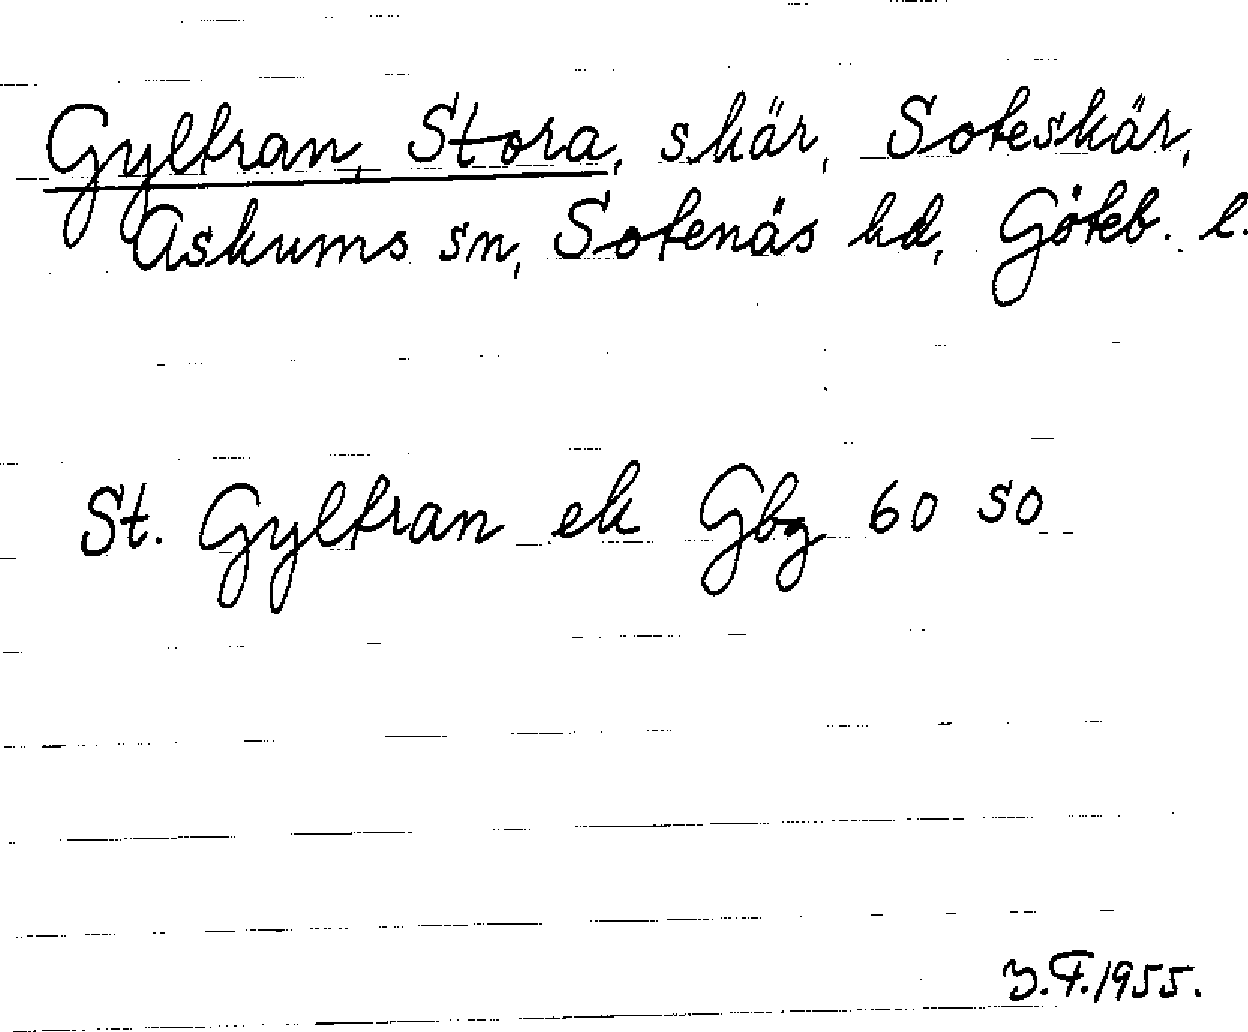 Gyltran, Stora, skär, Soteskär,
Askums sn, Sotenäs hd, Göteb. l.
St. Gyltran ek Gbg 60 SO
Y.F. 1955.